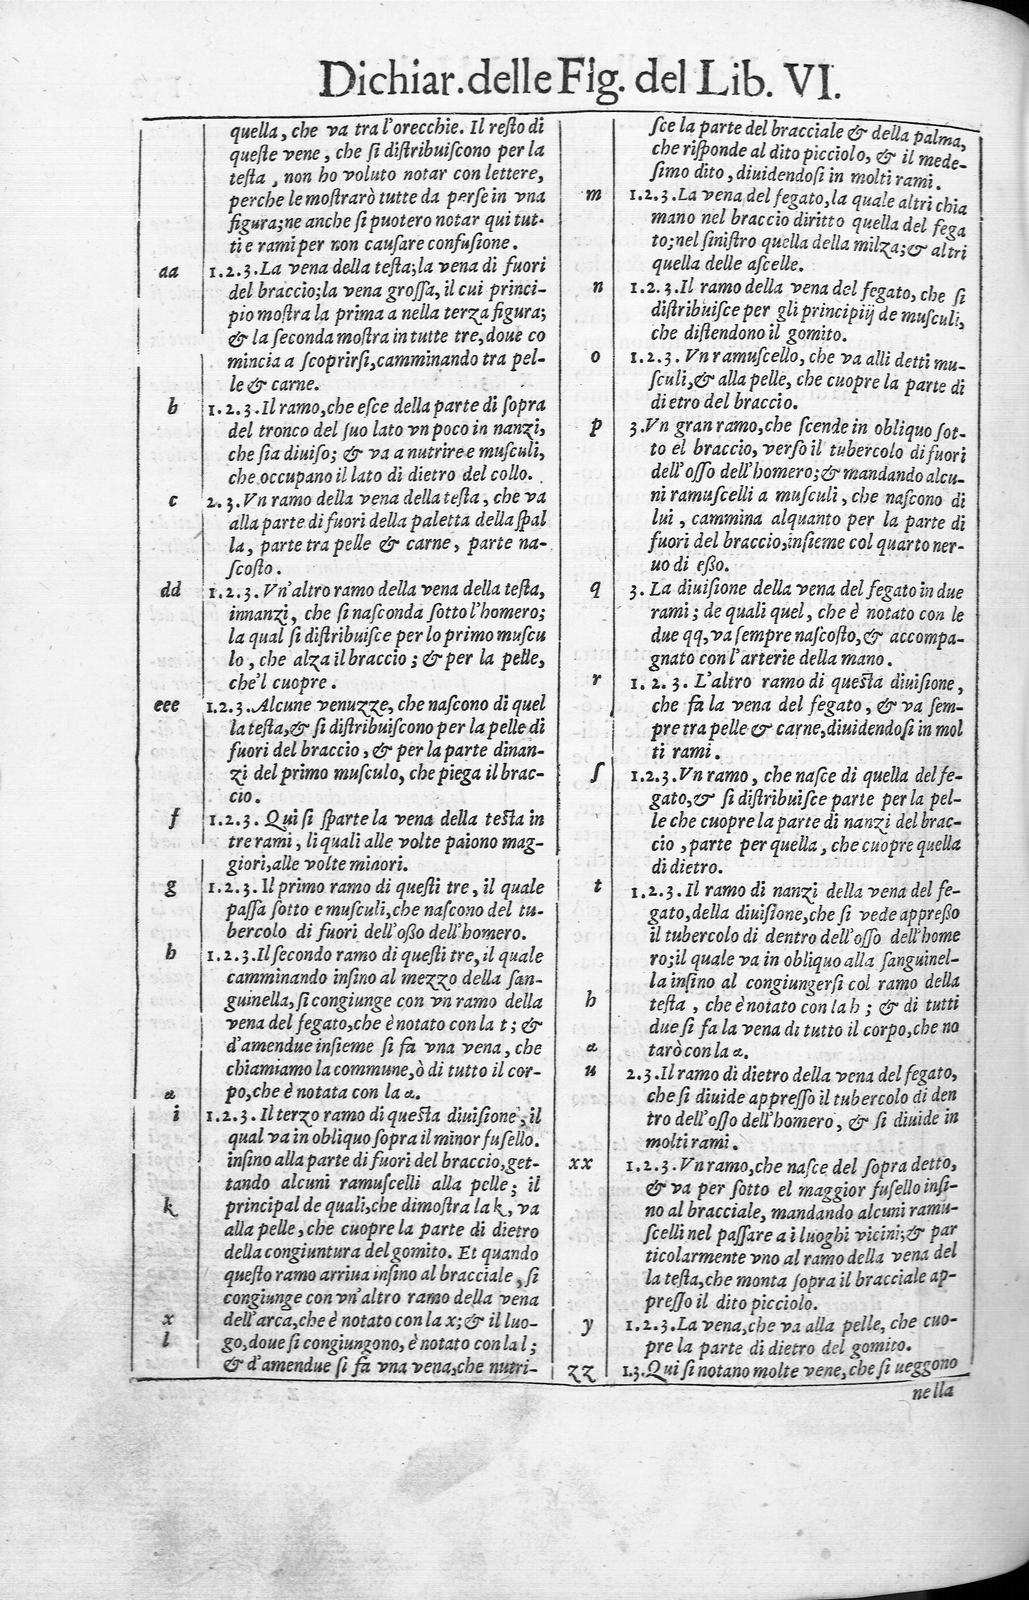 Dichiar. delle Fig. del Lib. VI.
quella, che va tra l'orecchie. Il resto di
queste vene, che si distribuiscono per la
testa, non ho voluto notar con lettere,
perche le mostrarò tutte da perse in vna
figura; ne anche si puotero notar qui tut-
ti e rami per non causare confusione.
aa 1.2.3. La vena della testa; la vena di fuori
del braccio; la vena grossa, il cui princi-
pio mostra la prima a nella terza figura;
& la seconda mostra in tutte tre, doue co
mincia a scoprirsi, camminando tra pel-
le & carne.
b 1.2.3. Il ramo, che esce della parte di sopra
del tronco del suo lato vn poco in nanzi,
che sia diuiso; & va a nutrire e musculi,
che occupano il lato di dietro del collo.
c 2.3. Vn ramo della vena della testa, che va
alla parte di fuori della paletta della spal
la, parte tra pelle & carne, parte na-
scosto.
dd 1.2.3. Vn'altro ramo della vena della testa,
innanzi, che si nasconda sotto l'homero;
la qual si distribuisce per lo primo muscu
lo, che alza il braccio; & per la pelle,
che'l cuopre.
eee 1.2.3. Alcune venuzze, che nascono di quel
la testa, & si distribuiscono per la pelle di
fuori del braccio, & per la parte dinan-
zi del primo musculo, che piega il brac-
cio.
f 1.2.3. Qui si sparte la vena della testa in
tre rami, li quali alle volte paiono mag-
giori, alle volte minori.
g 1.2.3. Il primo ramo di questi tre, il quale
passa sotto e musculi, che nascono del tu-
bercolo di fuori dell'osso dell'homero.
h 1.2.3. Il secondo ramo di questi tre, il quale
camminando insino al mezzo della san-
guinella, si congiunge con vn ramo della
vena del fegato, che è notato con la t; &
d'amendue insieme si fa vna vena, che
chiamiamo la commune, ò di tutto il cor-
α po, che è notata con la α.
i 1.2.3. Il terzo ramo di questa diuisione, il
qual va in obliquo sopra il minor fusello.
insino alla parte di fuori del braccio, get-
tando alcuni ramuscelli alla pelle; il
k principal de quali, che dimostra la k, va
alla pelle, che cuopre la parte di dietro
della congiuntura del gomito. Et quando
questo ramo arriua insino al bracciale, si
congiunge con vn'altro ramo della vena
x dell'arca, che è notato con la x; & il luo-
l go, doue si congiungono, è notato con la l;
& d'amendue si fa vna vena, che nutri-
sce la parte del bracciale & della palma,
che risponde al dito picciolo, & il mede-
simo dito, diuidendosi in molti rami.
m 1.2.3. La vena del fegato, la quale altri chia
mano nel braccio diritto quella del fega
to; nel sinistro quella della milza; & altri
quella delle ascelle.
n 1.2.3. Il ramo della vena del fegato, che si
distribuisce per gli principiij de musculi,
che distendono il gomito.
o 1.2.3. Vn ramuscello, che va alli detti mu-
sculi, & alla pelle, che cuopre la parte di
dietro del braccio.
p 3. Vn gran ramo, che scende in obliquo sot-
to el braccio, verso il tubercolo di fuori
dell'osso dell'homero; & mandando alcu-
ni ramuscelli a musculi, che nascono di
lui, cammina alquanto per la parte di
fuori del braccio, insieme col quarto ner-
uo di esso.
q 3. La diuisione della vena del fegato in due
rami; de quali quel, che è notato con le
due qq, va sempre nascosto, & accompa-
gnato con l'arterie della mano.
r 1.2.3. L'altro ramo di questa diuisione,
che fa la vena del fegato, & va sem-
pre tra pelle & carne, diuidendosi in mol
ti rami.
ſ 1.2.3. Vn ramo, che nasce di quella del fe-
gato, & si distribuisce parte per la pel-
le che cuopre la parte di nanzi del brac-
cio, parte per quella, che cuopre quella
di dietro.
t 1.2.3. Il ramo di nanzi della vena del fe-
gato, della diuisione, che si vede appresso
il tubercolo di dentro dell'osso dell'home
ro; il quale va in obliquo alla sanguinel-
la insino al congiungersi col ramo della
h testa, che è notato con la h; & di tutti
due si fa la vena di tutto il corpo, che no
α tarò con la α.
u 2.3. Il ramo di dietro della vena del fegato,
che si diuide appresso il tubercolo di den
tro dell'osso dell'homero, & si diuide in
molti rami.
xx 1.2.3. Vn ramo, che nasce del sopra detto,
& va per sotto el maggior fusello insi-
no al bracciale, mandando alcuni ramu-
scelli nel passare a i luoghi vicini; & par
ticolarmente vno al ramo della vena del
la testa, che monta sopra il bracciale ap-
presso il dito picciolo.
y 1.2.3. La vena, che va alla pelle, che cuo-
pre la parte di dietro del gomito.
zz 1.3. Qui si notano molte vene, che si ueggono
nella